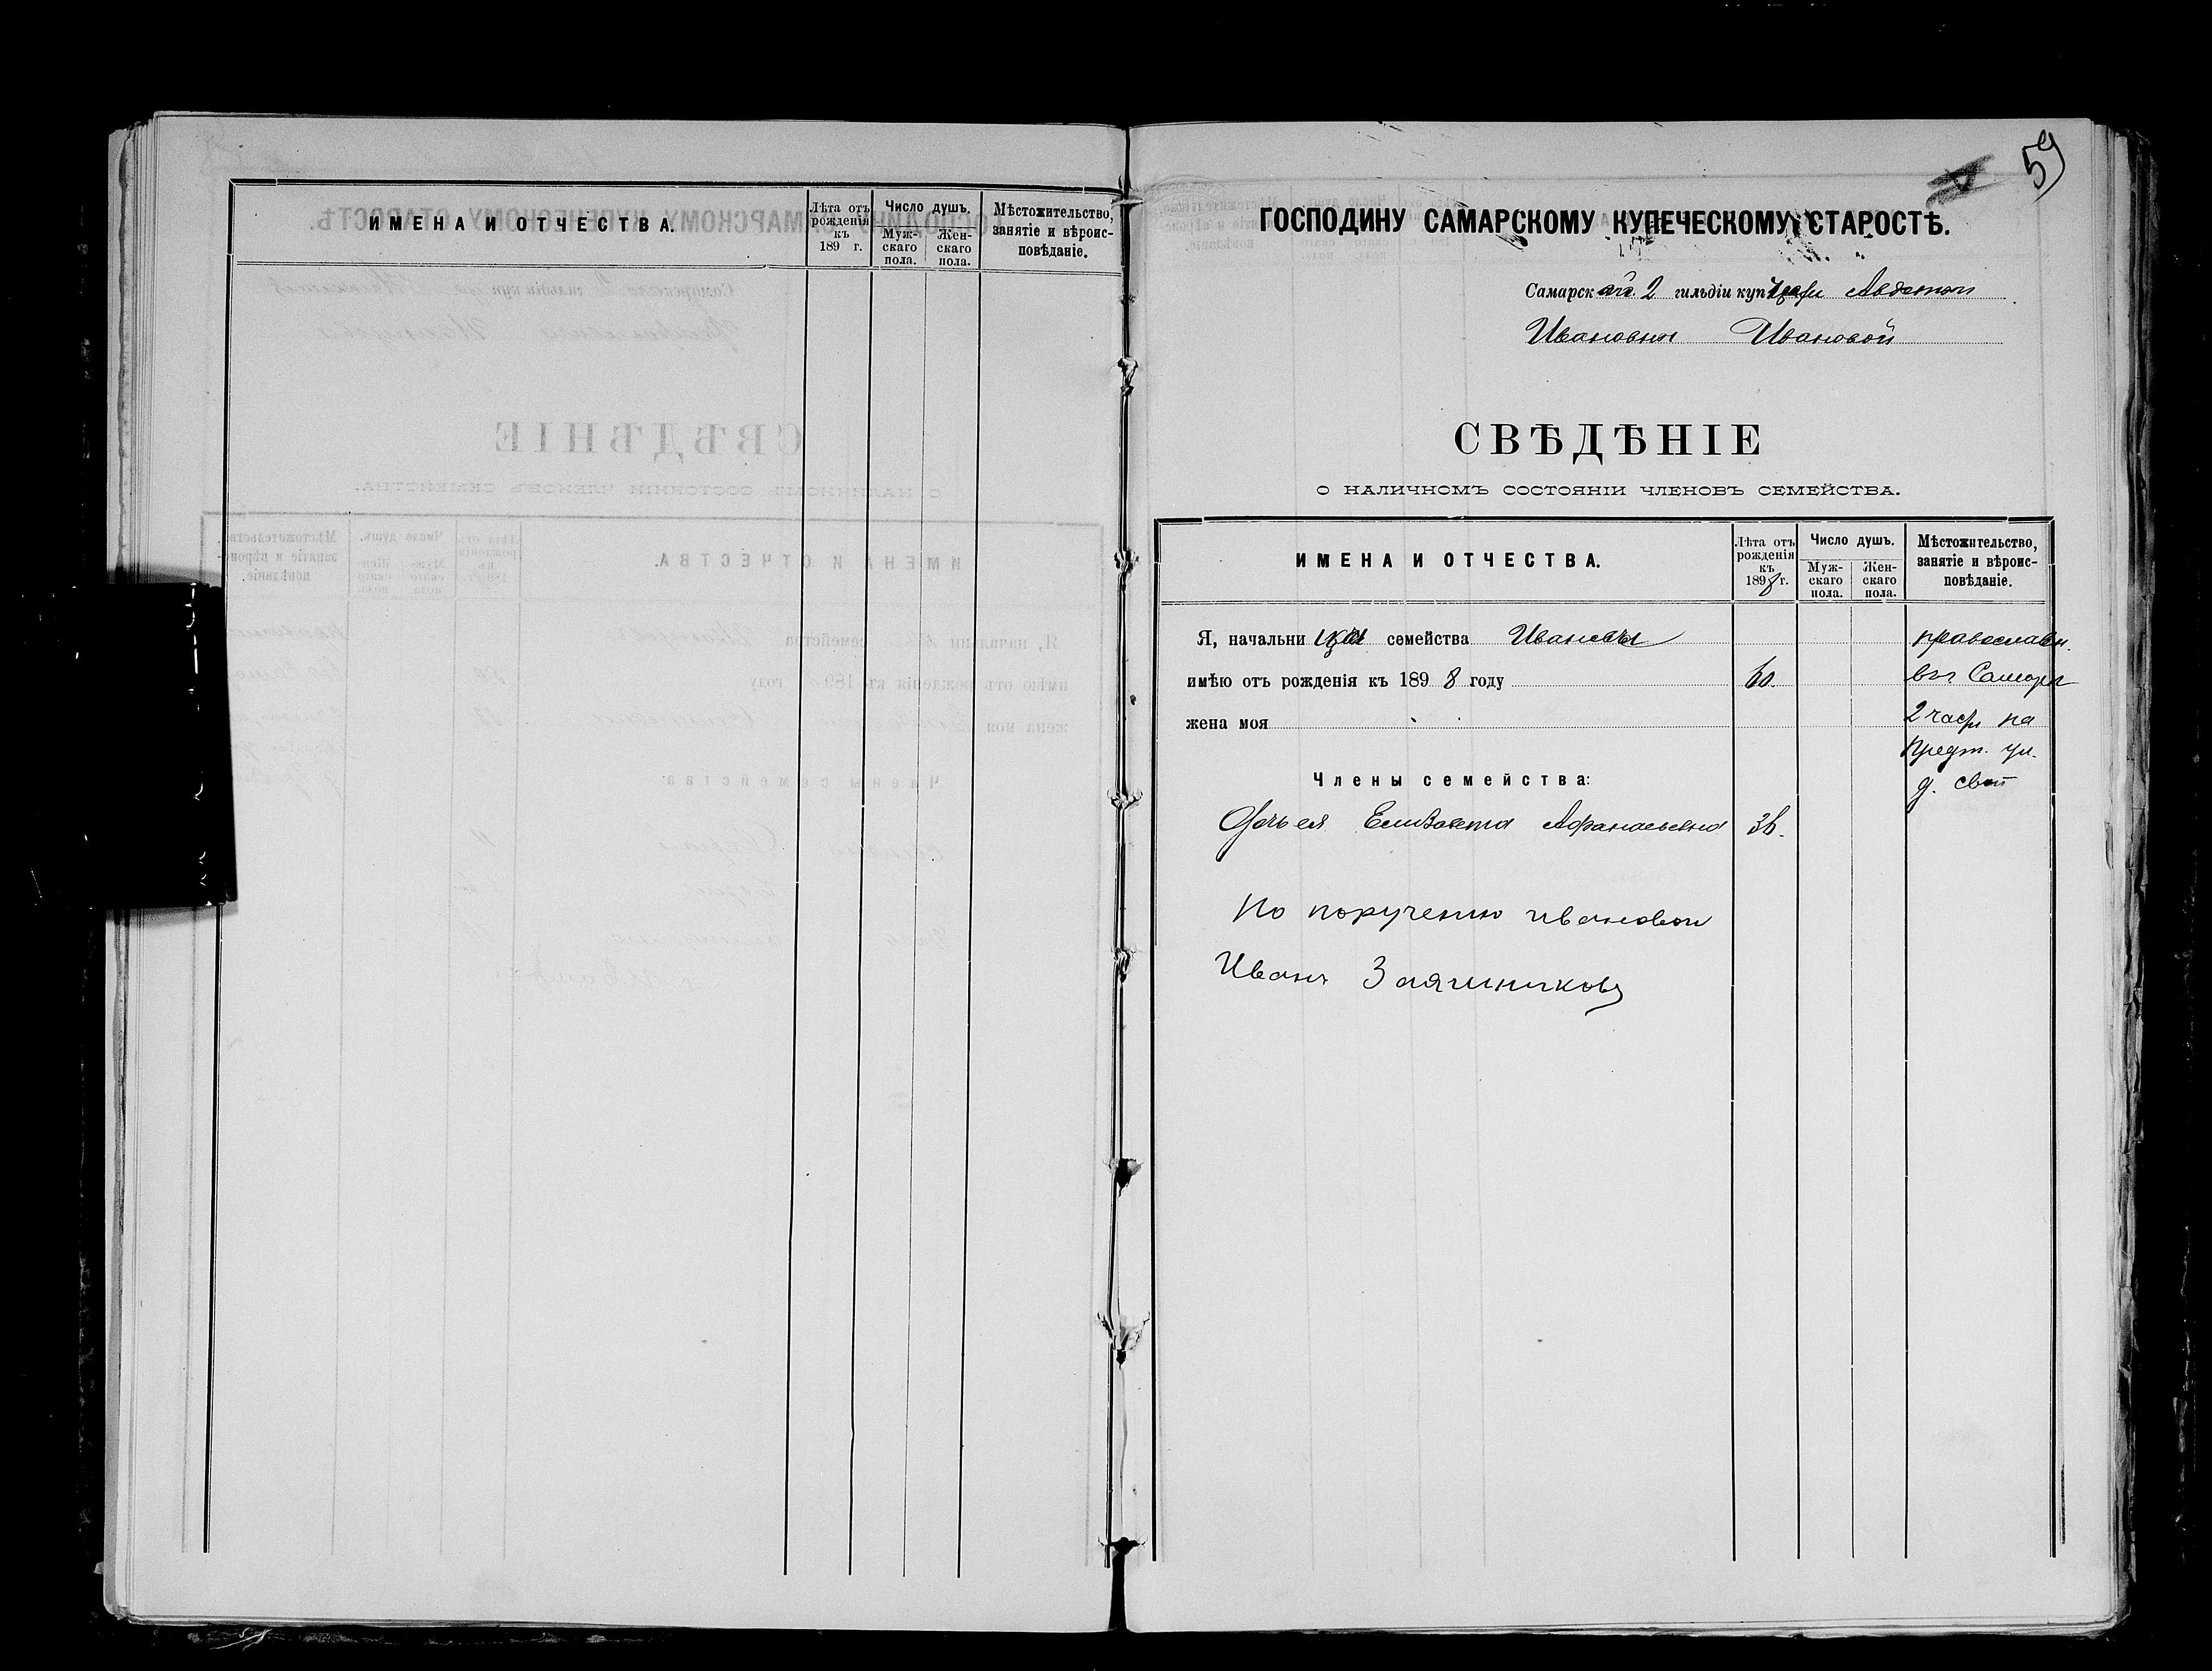 ИМЕНА И ОТЧЕСТВА.
Лѣта отъ рожденія къ 189 г.
Число душъ.
Муж-скаго пола.
Жен-скаго пола.
Мѣстожительство, занятіе и вѣроис-повѣданіе.
59
ГОСПОДИНУ САМАРСКОМУ КУПЕЧЕСКОМУ СТАРОСТѢ.
Самарской 2 гильдіи купчихи Авдотьи
Ивановны Ивановой
СВѢДѢНІЕ
О НАЛИЧНОМЪ СОСТОЯНІИ ЧЛЕНОВЪ СЕМЕЙСТВА.
ИМЕНА И ОТЧЕСТВА.
Лѣта отъ рожденія къ 1898 г.
Число душъ.
Муж-скаго пола.
Жен-скаго пола.
Мѣстожительство, занятіе и вѣроис-повѣданіе.
Я, начальница семейства Иванова православн.
имѣю отъ рожденія къ 1898 году 60. въ Самарѣ
жена моя 2 части на
Предт. ул.
Члены семейства: д. свой
Дочь ея Елизавета Афанасьевна 36.
По порученію Ивановой
Иванъ